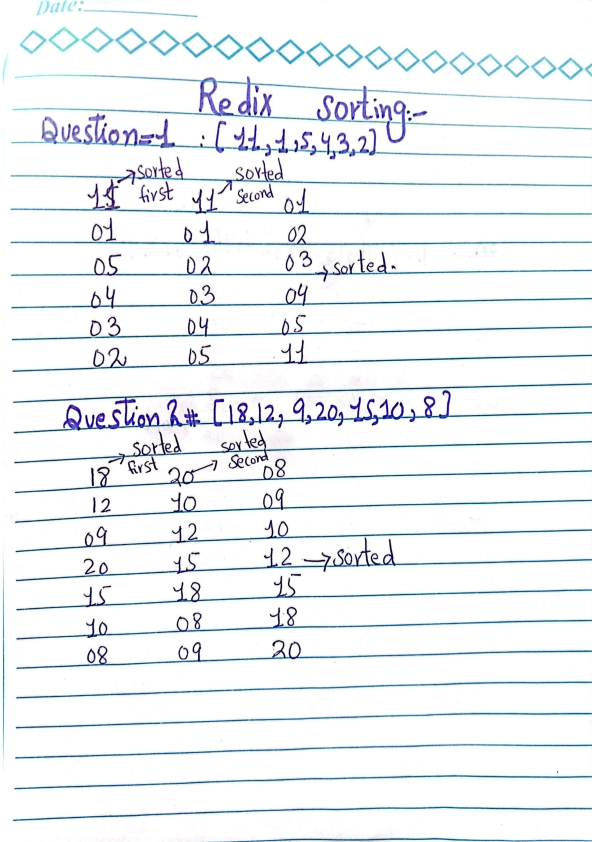 Date:
Redix sorting:-
Question=1 : [11,1,5,4,3,2]
sorted first sorted second
11 11 01
01 01 02
05 02 03 → sorted.
04 03 04
03 04 05
02 05 11
Question 2# [18,12, 9,20, 15,10, 8]
sorted first sorted second
18 20 08
12 10 09
09 12 10
20 15 12 → sorted
15 18 15
10 08 18
08 09 20